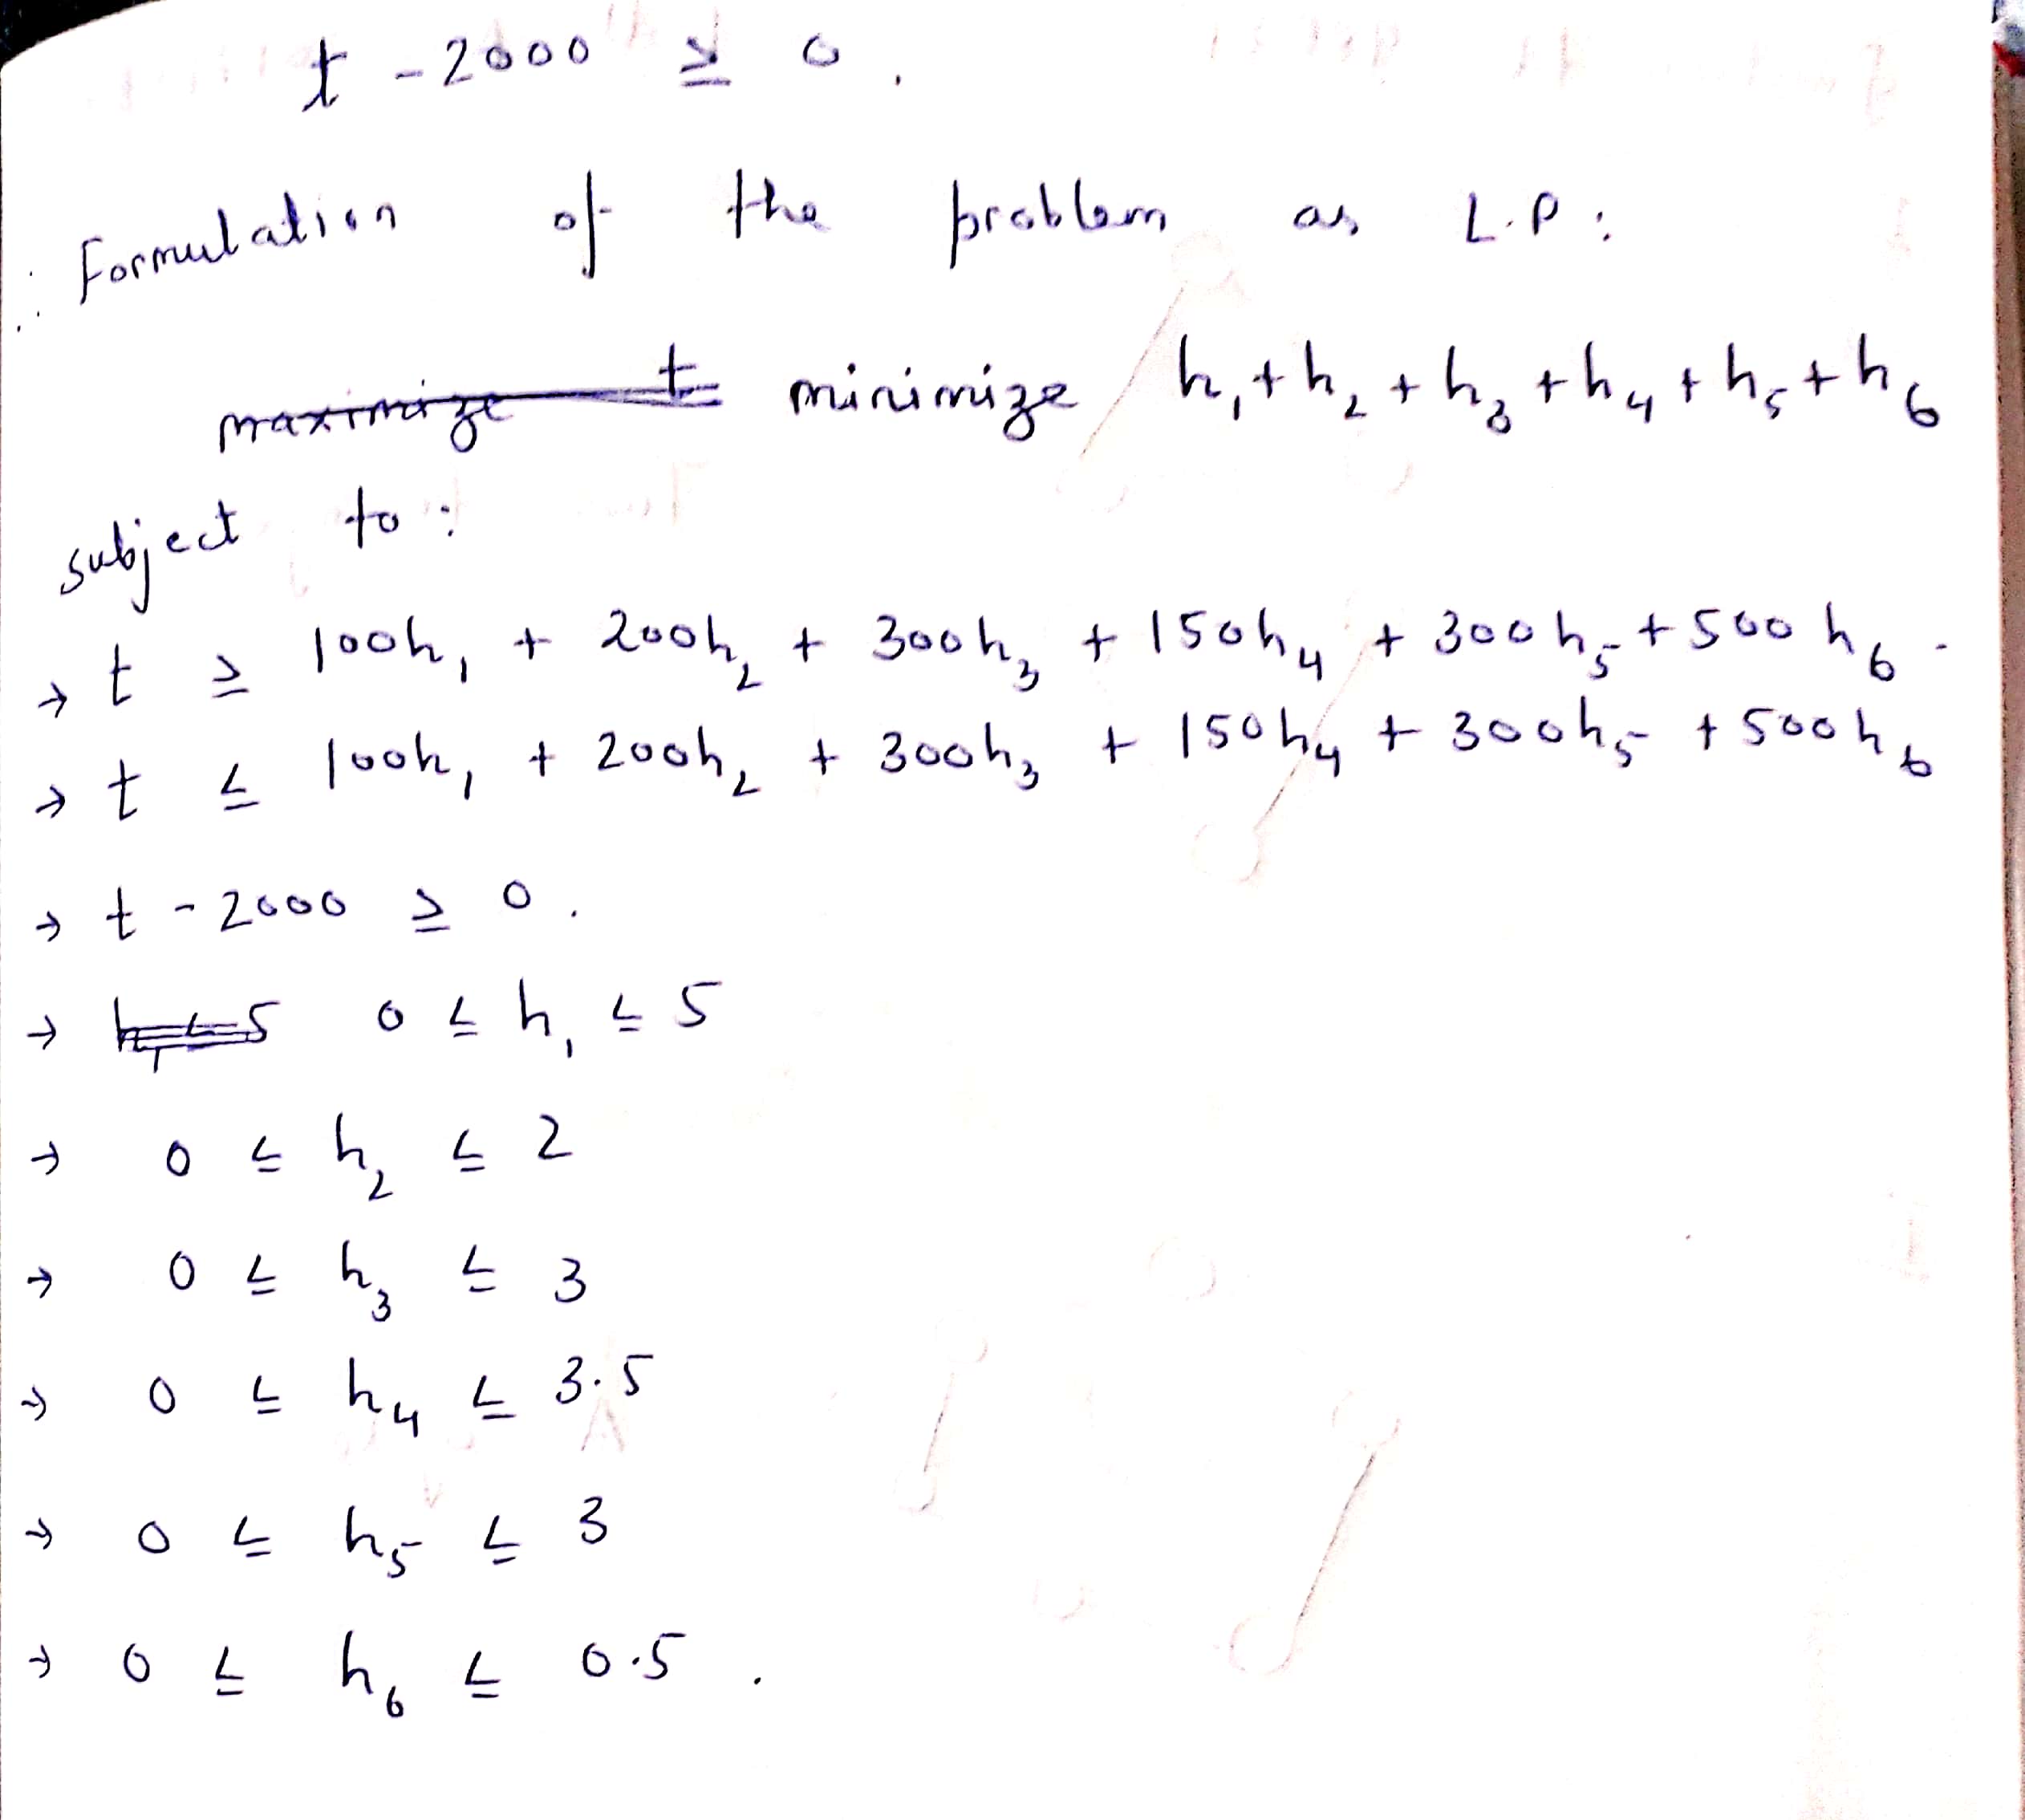 t - 2000 ≥ 0.
∴ Formulation of the problem as L.P:
maximize t minimize h₁ + h₂ + h₃ + h₄ + h₅ + h₆
subject to:
→ t ≥ 100h₁ + 200h₂ + 300h₃ + 150h₄ + 300h₅ + 500h₆.
→ t ≤ 100h₁ + 200h₂ + 300h₃ + 150h₄ + 300h₅ + 500h₆
→ t - 2000 ≥ 0.
→ h₁ ≤ 5 0 ≤ h₁ ≤ 5
→ 0 ≤ h₂ ≤ 2
→ 0 ≤ h₃ ≤ 3
→ 0 ≤ h₄ ≤ 3.5
→ 0 ≤ h₅ ≤ 3
→ 0 ≤ h₆ ≤ 0.5.